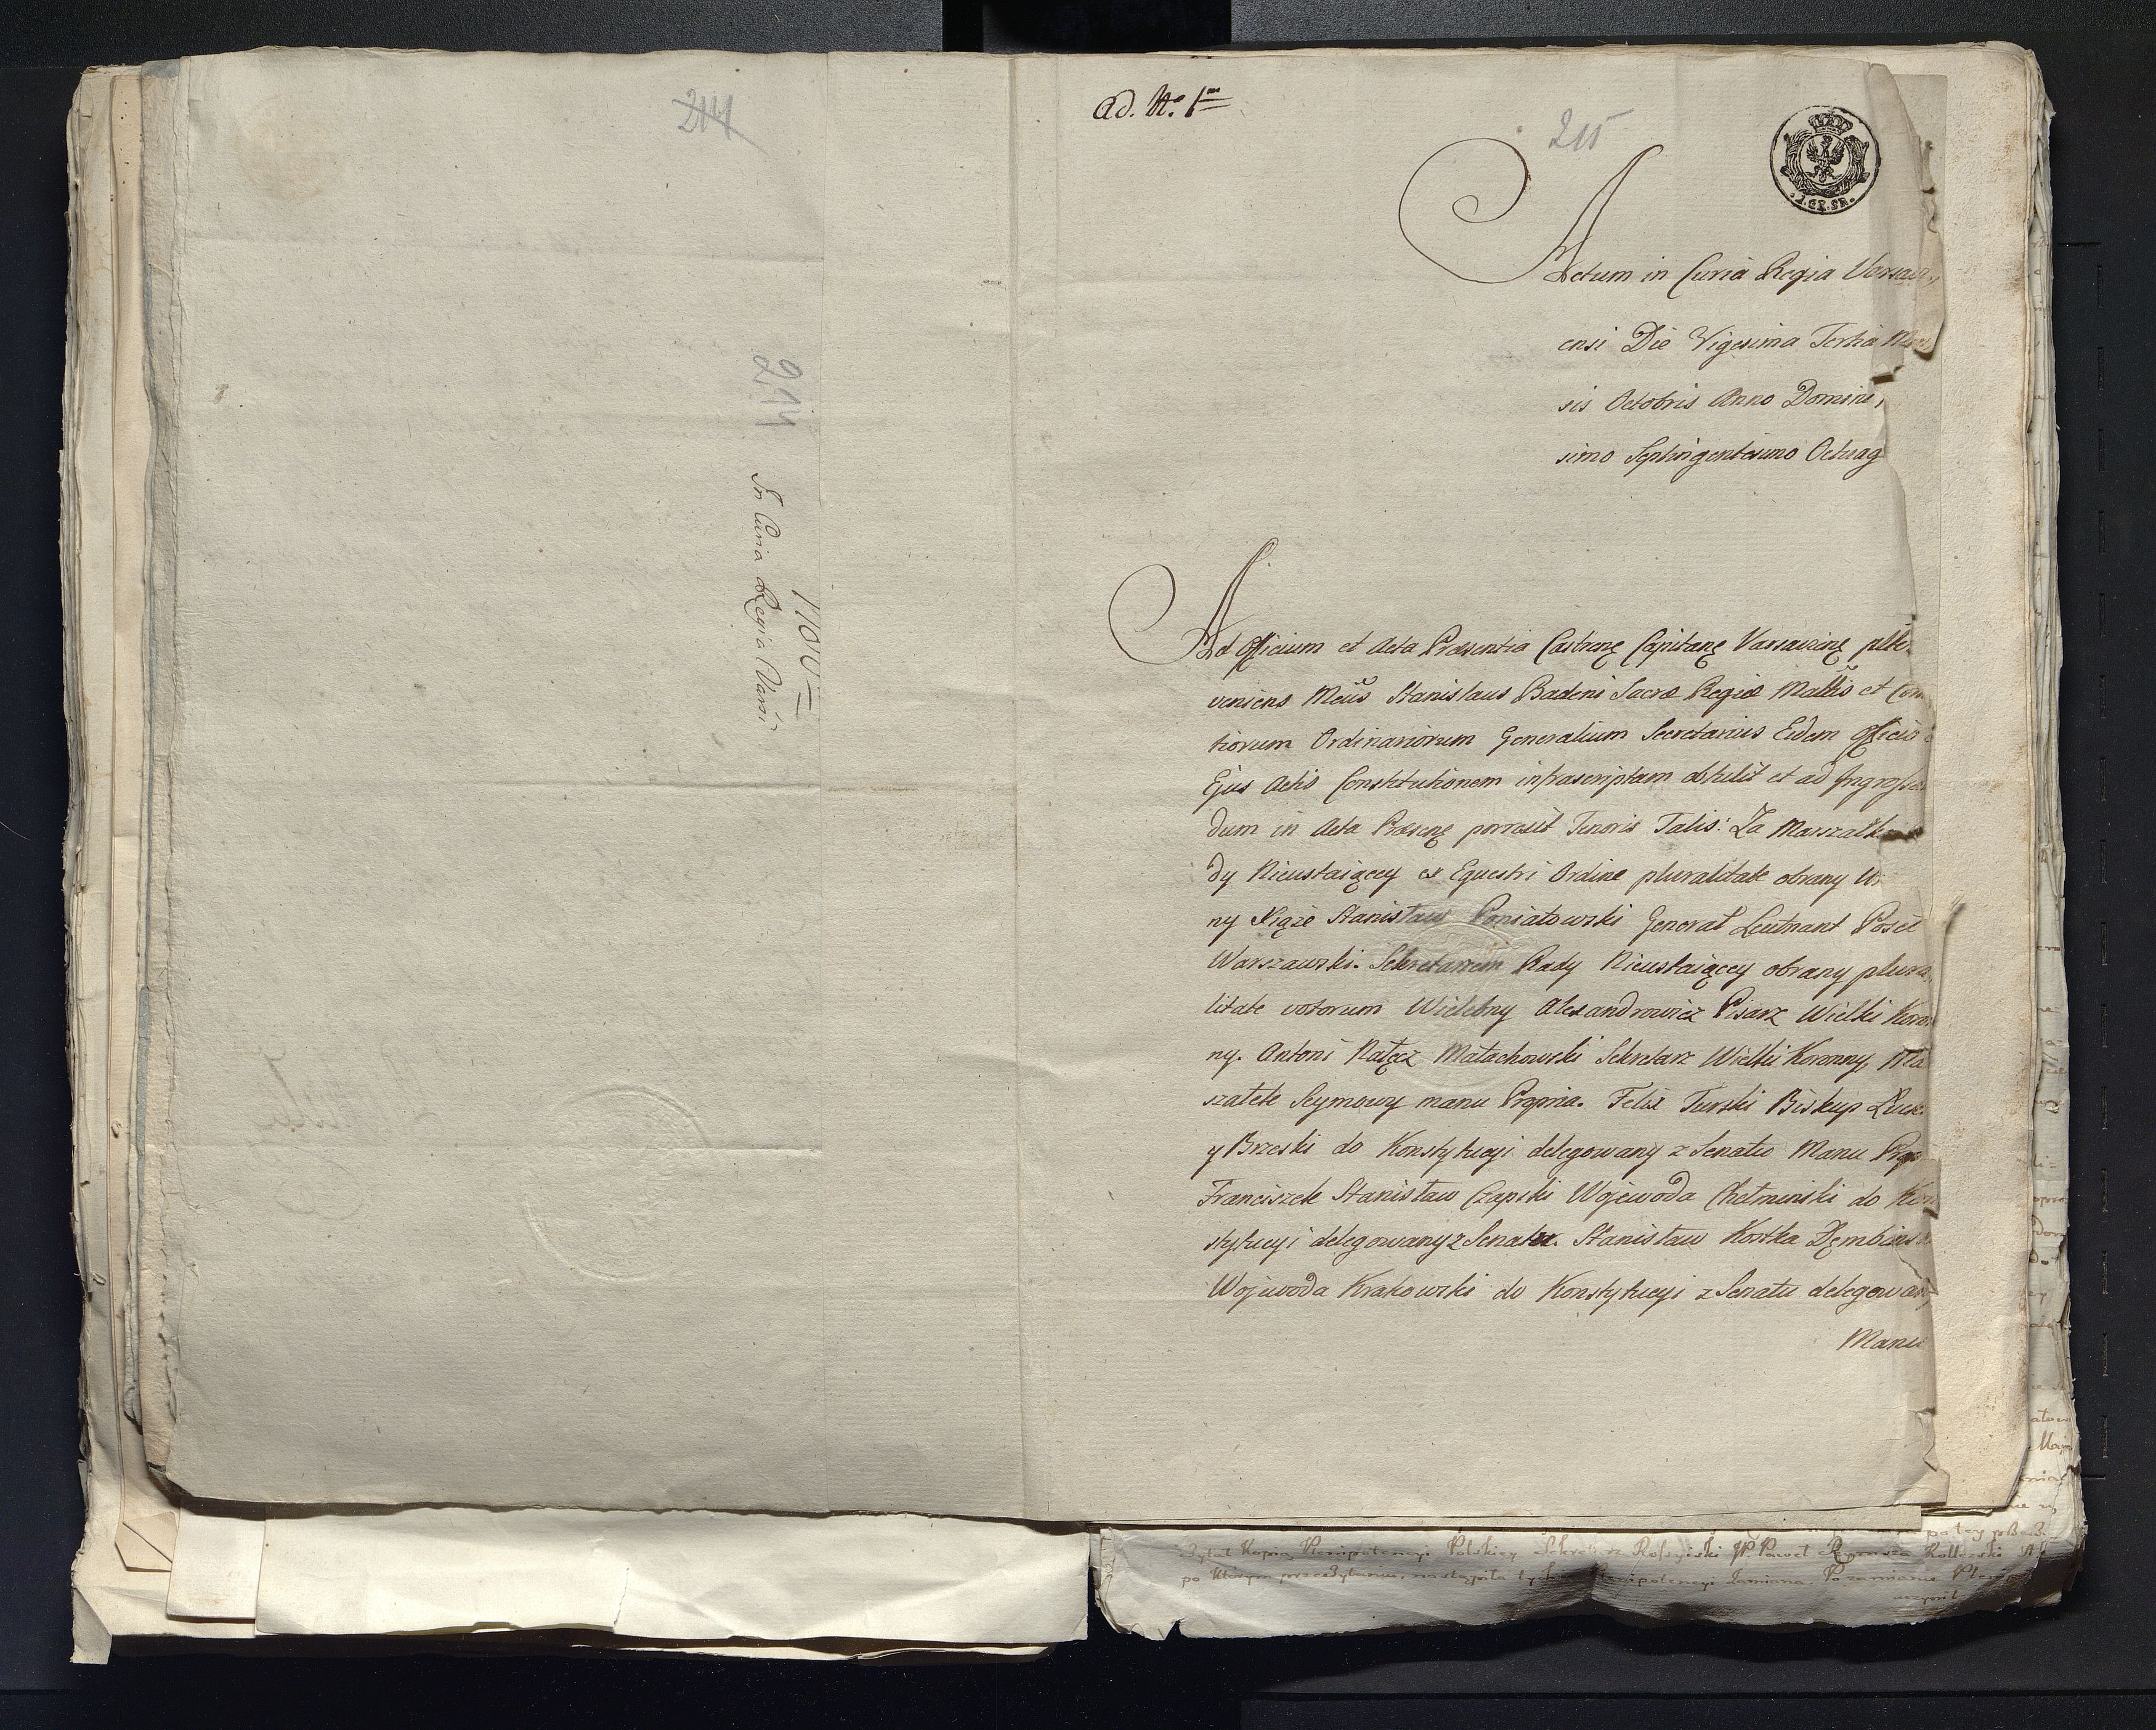 214
214
In Curia Regia Varsi
Ad. No. 1mo
215
1. GR. SR.
Actum in Curia Regia Varsavi,
ensi Die Vigesima Tertia Men
sis Octobris Anno Domini,
simo Septingentesimo Octuag
Ad Officium et Acta Præsentia Castrenę Capitanę Varsavienę
veniens Mcus Stanislaus Badeni Sacræ Regiæ Mattis et Com
tiorum Ordinariorum Generalium Secretarius Eidem Officio
Ejus Actis Constitutionem infrascriptam obtulit et ad Ingrossan
dum in Acta Præsenę porrexit Tenoris Talis: Za Marszałka
dy Nieustaiącey ex Equestri Ordine pluralitate obrany
ny Xiąże Stanisław Poniatowski Generał Leutnant Poseł
Warszawski. Sekretarzem Rady Nieustaiącey obrany plura,
litate votorum Wielebny Alexandrowicz Pisarz Wielki Koron
ny. Antoni Nałęcz Małachowski Sekretarz Wielki Koronny, Ma
szałek Seymowy manu Propria. Felix Turski Biskup Łuck
y Brzeski do Konstytucyi delegowany z Senatu Manu Prop
Franciszek Stanisław Czapski Wojewoda Chełminski do Kon
stytucyi delegowany z Senatu. Stanisław Kostka Dęmbinski
Wojewoda Krakowski do Konstytucyi z Senatu delegowany
Manu